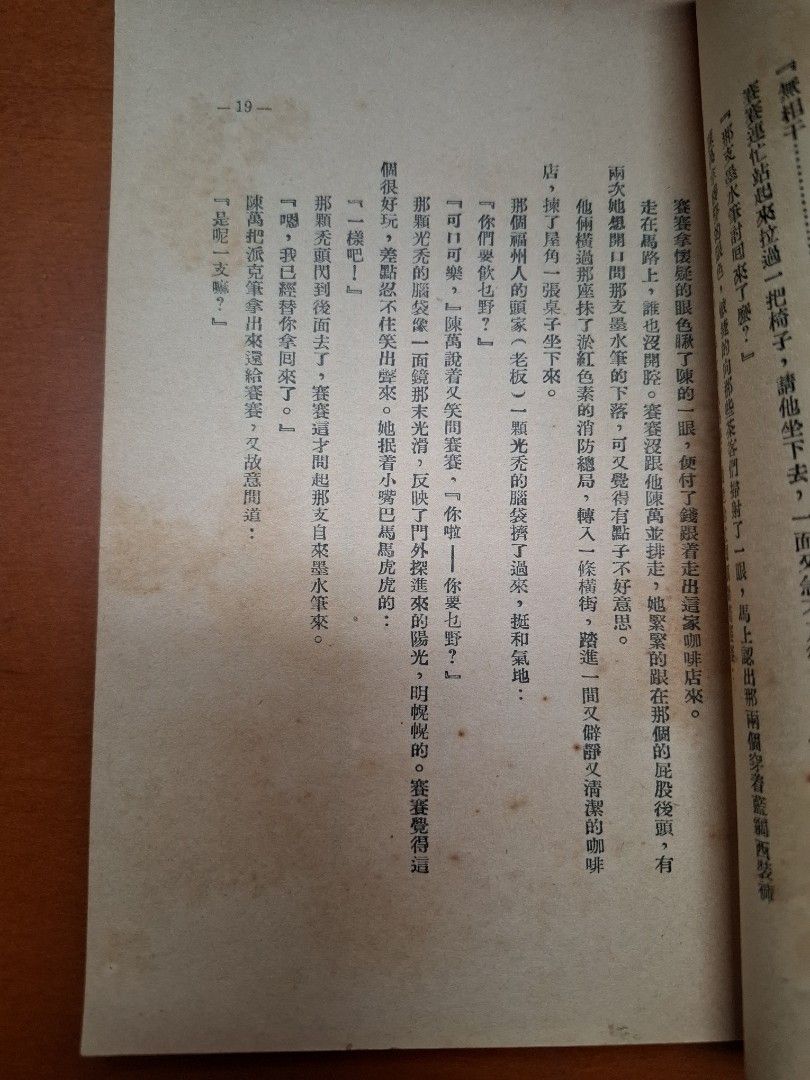 『無相干
賽賽連忙站起來拉過一把椅子，請他坐下去，一面
『那支墨水筆討回來了麼？』
掃射了一眼，馬上認出那兩個穿着藍綢西裝褲
賽賽拿懷疑的眼色瞅了陳的一眼，便付了錢跟着走出這家咖啡店來。
走在馬路上，誰也沒開腔。賽賽沒跟他陳萬並排走，她緊緊的跟在那個的屁股後頭，有
兩次她想開口問那支墨水筆的下落，可又覺得有點子不好意思。
他倆橫過那座抹了淤紅色素的消防總局，轉入一條橫街，踏進一間又僻靜又清潔的咖啡
店，揀了屋角一張桌子坐下來。
那個福州人的頭家（老板）一顆光禿的腦袋擠了過來，挺和氣地：
『你們要飲乜野？』
『可口可樂，』陳萬說着又笑問賽賽，『你啦——你要乜野？』
那顆光禿的腦袋像一面鏡那末光滑，反映了門外探進來的陽光，明幌幌的。賽賽覺得這
個很好玩，差點忍不住笑出聲來。她抿着小嘴巴馬馬虎虎的：
『一樣吧！』
那顆禿頭閃到後面去了，賽賽這才問起那支自來墨水筆來。
『嗯，我已經替你拿回來了。』
陳萬把派克筆拿出來還給賽賽，又故意問道：
『是呢一支嘛？』
—19—